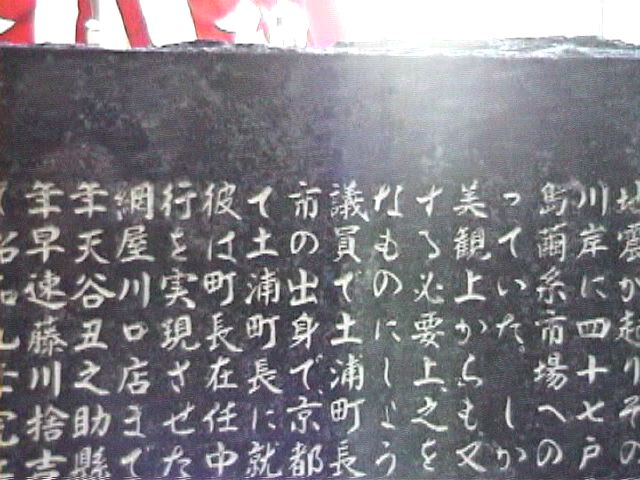 地震が起りその
川岸に四十七戸
島繭糸市場への
っていた。しか
美観上からも又
する必要上之を
なものにしよう
議員で土浦町長
市の出身で京都
て土浦町長に就
彼は町長在任中
行を実現させた
網屋川口店まで
年天谷丑之助縣
年早速藤川捨吉